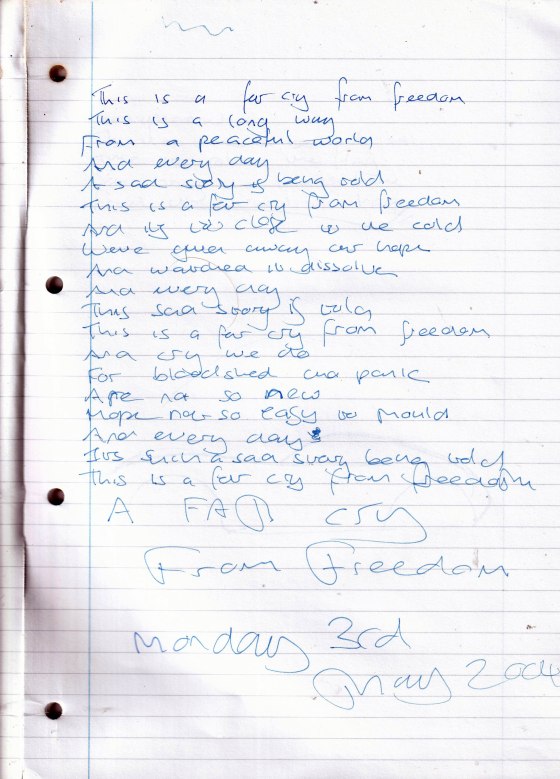 This is a far cry from freedom
This is a long way
From a peaceful world
And every day
A sad story is being told
This is a far cry from freedom
And its too close to the cold
Weve given away our hope
And watched it dissolve
And every day
This sad story is told
This is a far cry from freedom
And cry we do
For bloodshed and panic
Are not so new
Hope not so easy to mould
And every day
Its such a sad story being told
This is a far cry from freedom
A FAR cry
From Freedom
Monday 3rd
May 2004